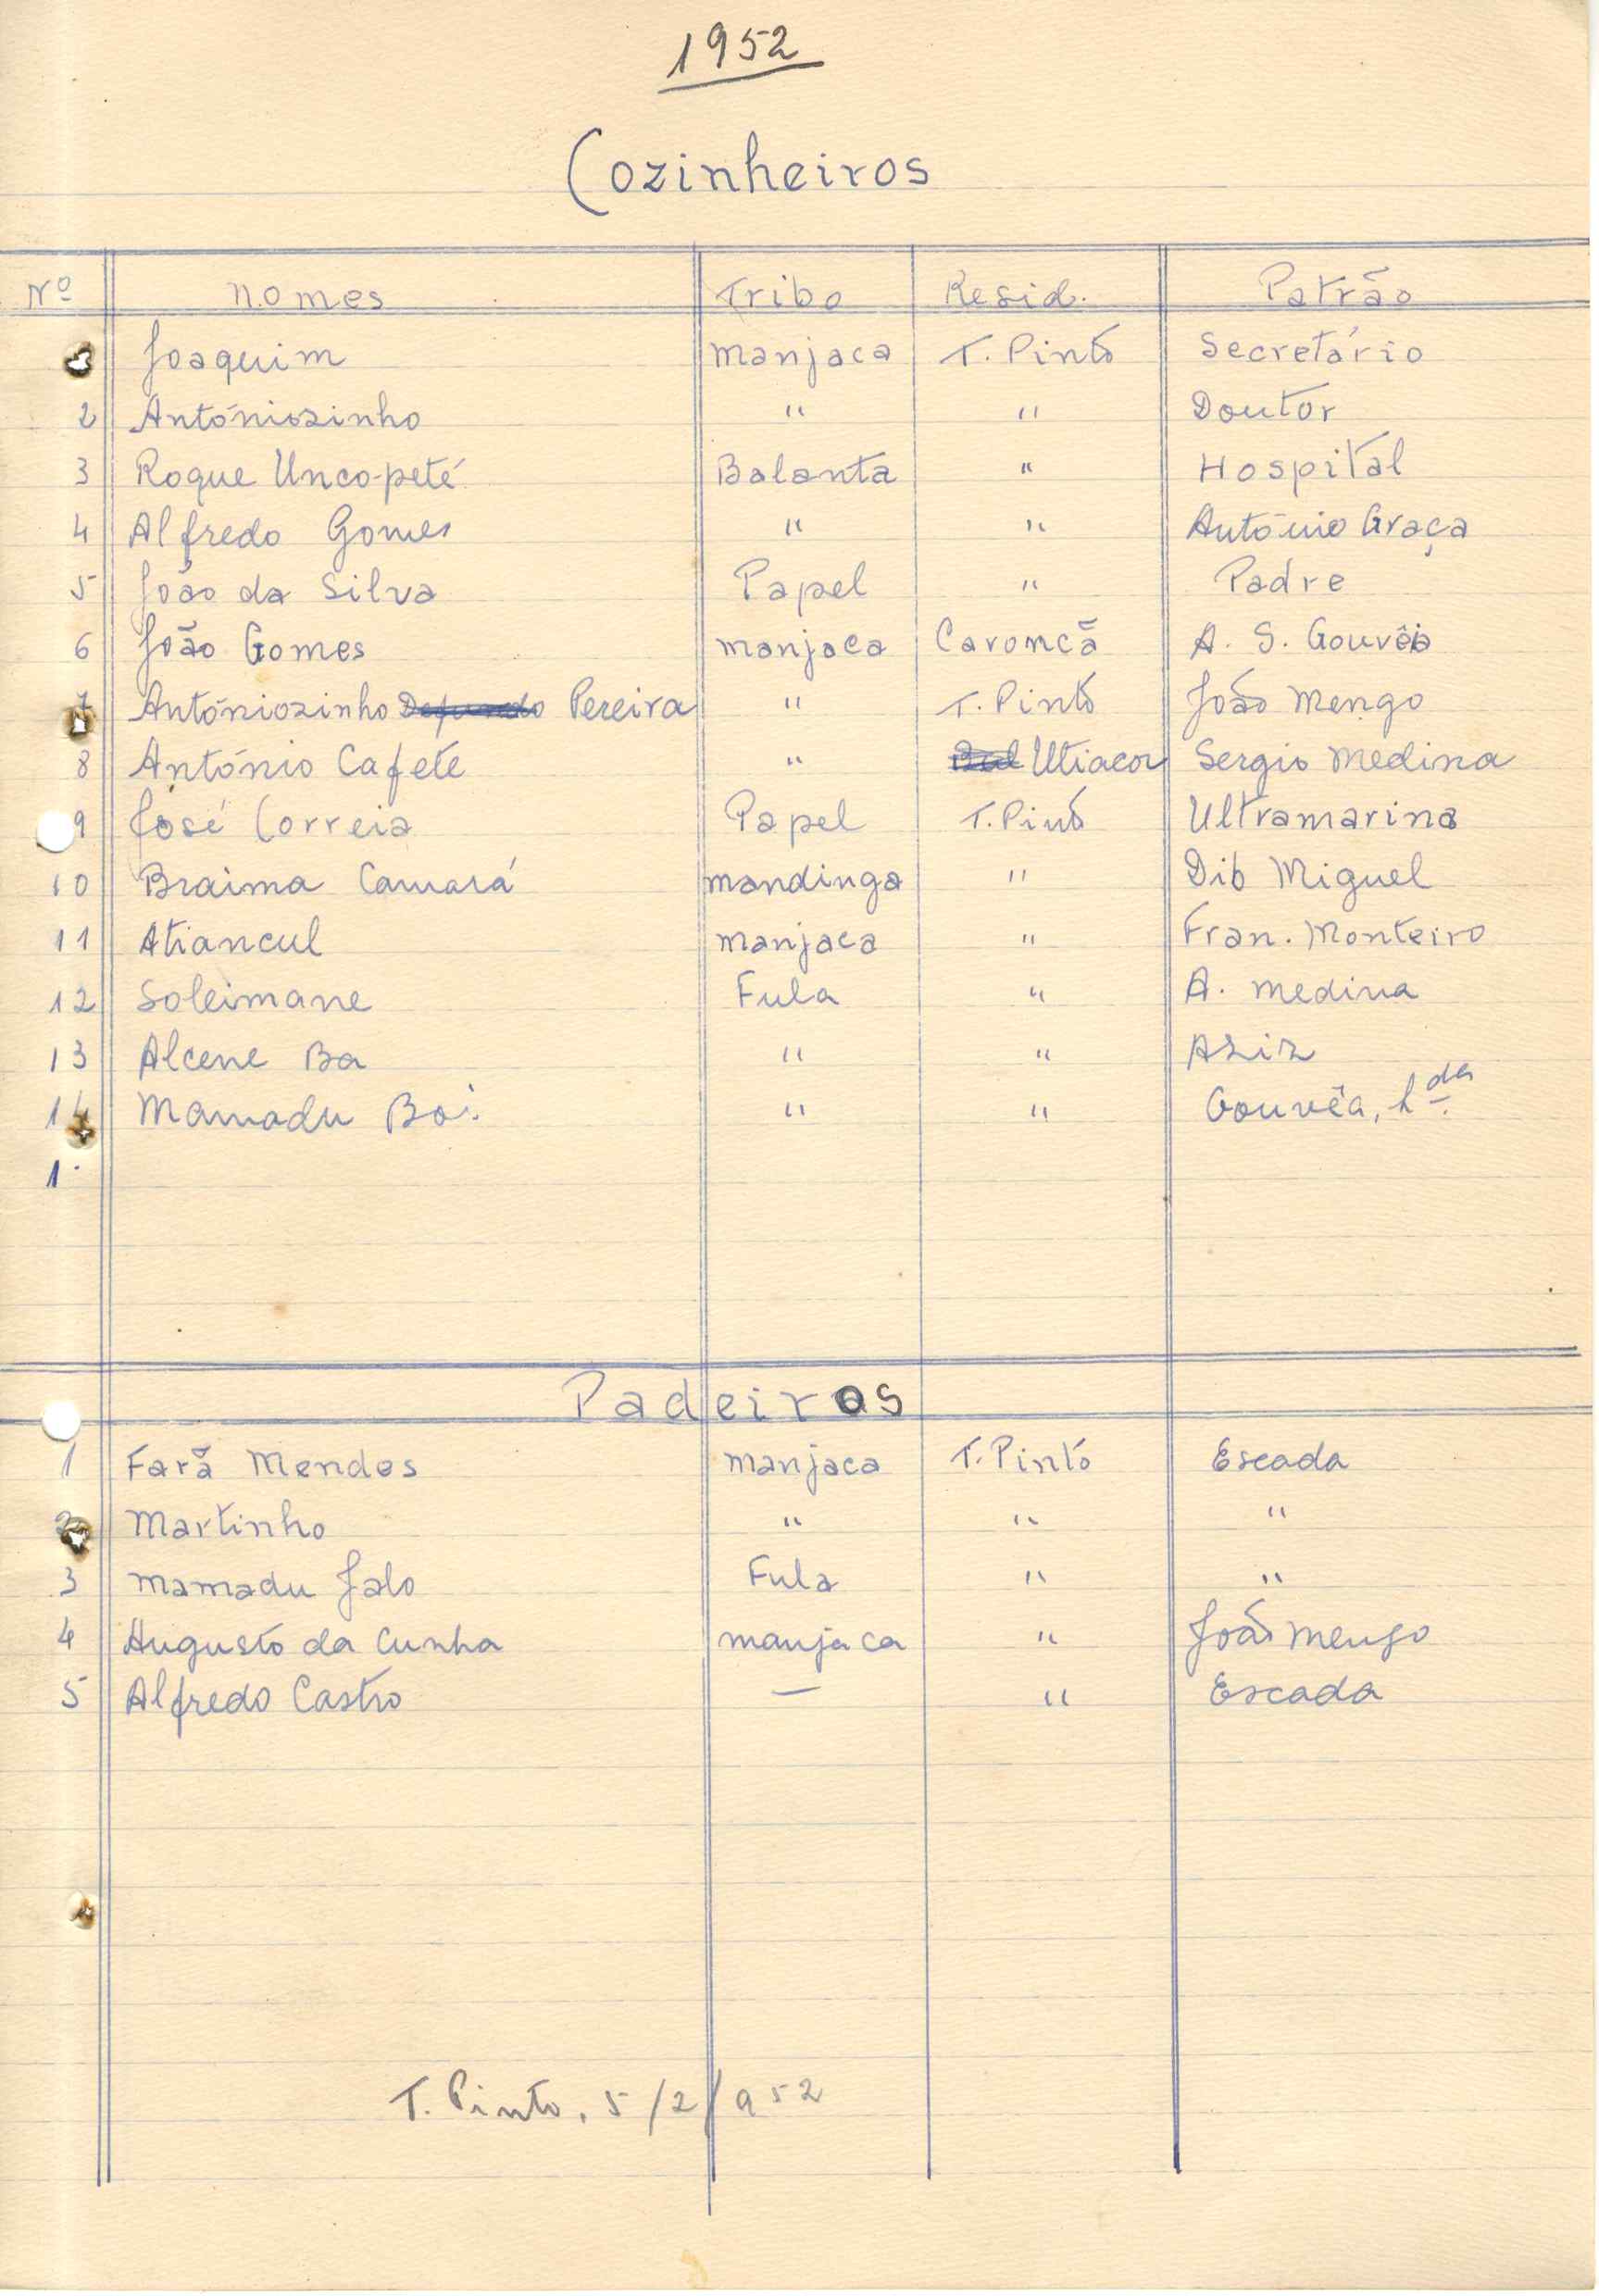 1952
Cozinheiros
Nº Nomes Tribo Resid. Patrão
Joaquim manjaca T. Pinto Secretário
2 Antóniozinho " " Doutor
3 Roque Unco-peté Balanta " Hospital
4 Alfredo Gomes " " António Graça
5 João da Silva Papel " Padre
6 João Gomes manjaca Caroncã A. S. Gouvêia
7 Antóniozinho Pereira " T. Pinto João Mengo
8 António Cafete " Utiacor Sergio Medina
9 José Correia Papel T. Pinto Ultramarina
10 Braima Camará mandinga " Dib Miguel
11 Atiancul manjaca " Fran. Monteiro
12 Soleimane Fula " A. Medina
13 Alcene Ba " " Aziz
14 Mamadu Bai " " Gouvêa, Lda.
1
Padeiros
1 Farã Mendes manjaca T. Pinto Escada
2 Martinho " " "
3 Mamadu Jalo Fula " "
4 Augusto da Cunha manjaca " João Mengo
5 Alfredo Castro — " Escada
T. Pinto, 5/2/952